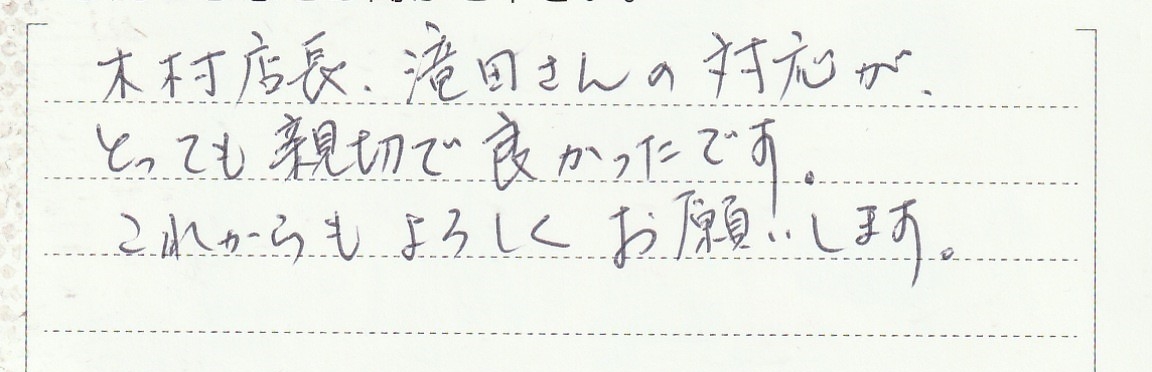 木村店長、滝田さんの対応が、
とっても親切で良かったです。
これからもよろしくお願いします。